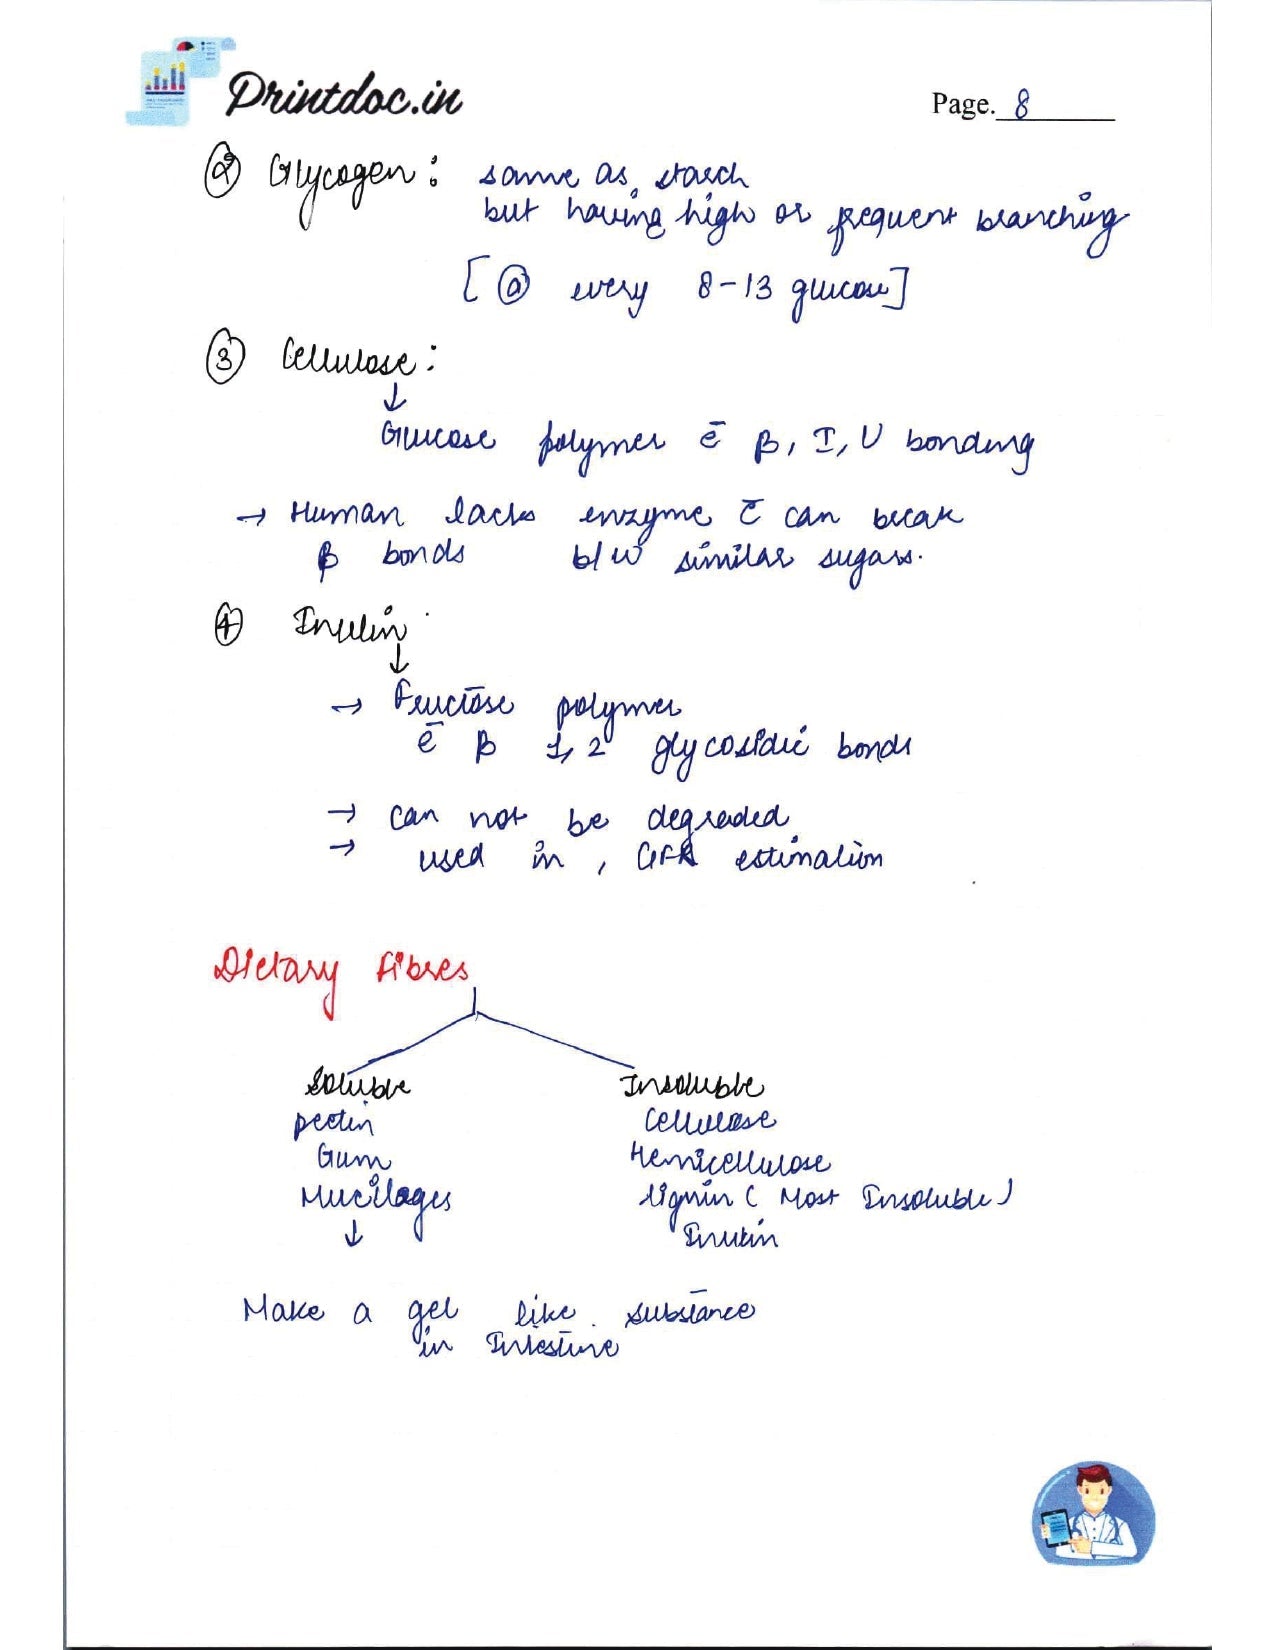 Printdoc.in
Page. 8
② Glycogen : same as starch
but having high or frequent branching
[@ every 8-13 glucose]
③ Cellulose :
↓
Glucose polymer c̄ β, I, U bonding
→ Human lacks enzyme c̄ can break
β bonds b/w similar sugars.
④ Inulin
↓
→ Fructose polymer
c̄ β 1,2 glycosidic bonds
→ can not be degraded
→ used in, GFR estimation
Dietary fibres
Soluble Insoluble
pectin Cellulose
Gum Hemicellulose
Mucilages lignin ( Most Insoluble )
↓ Inulin
Make a gel like substance
in Intestine